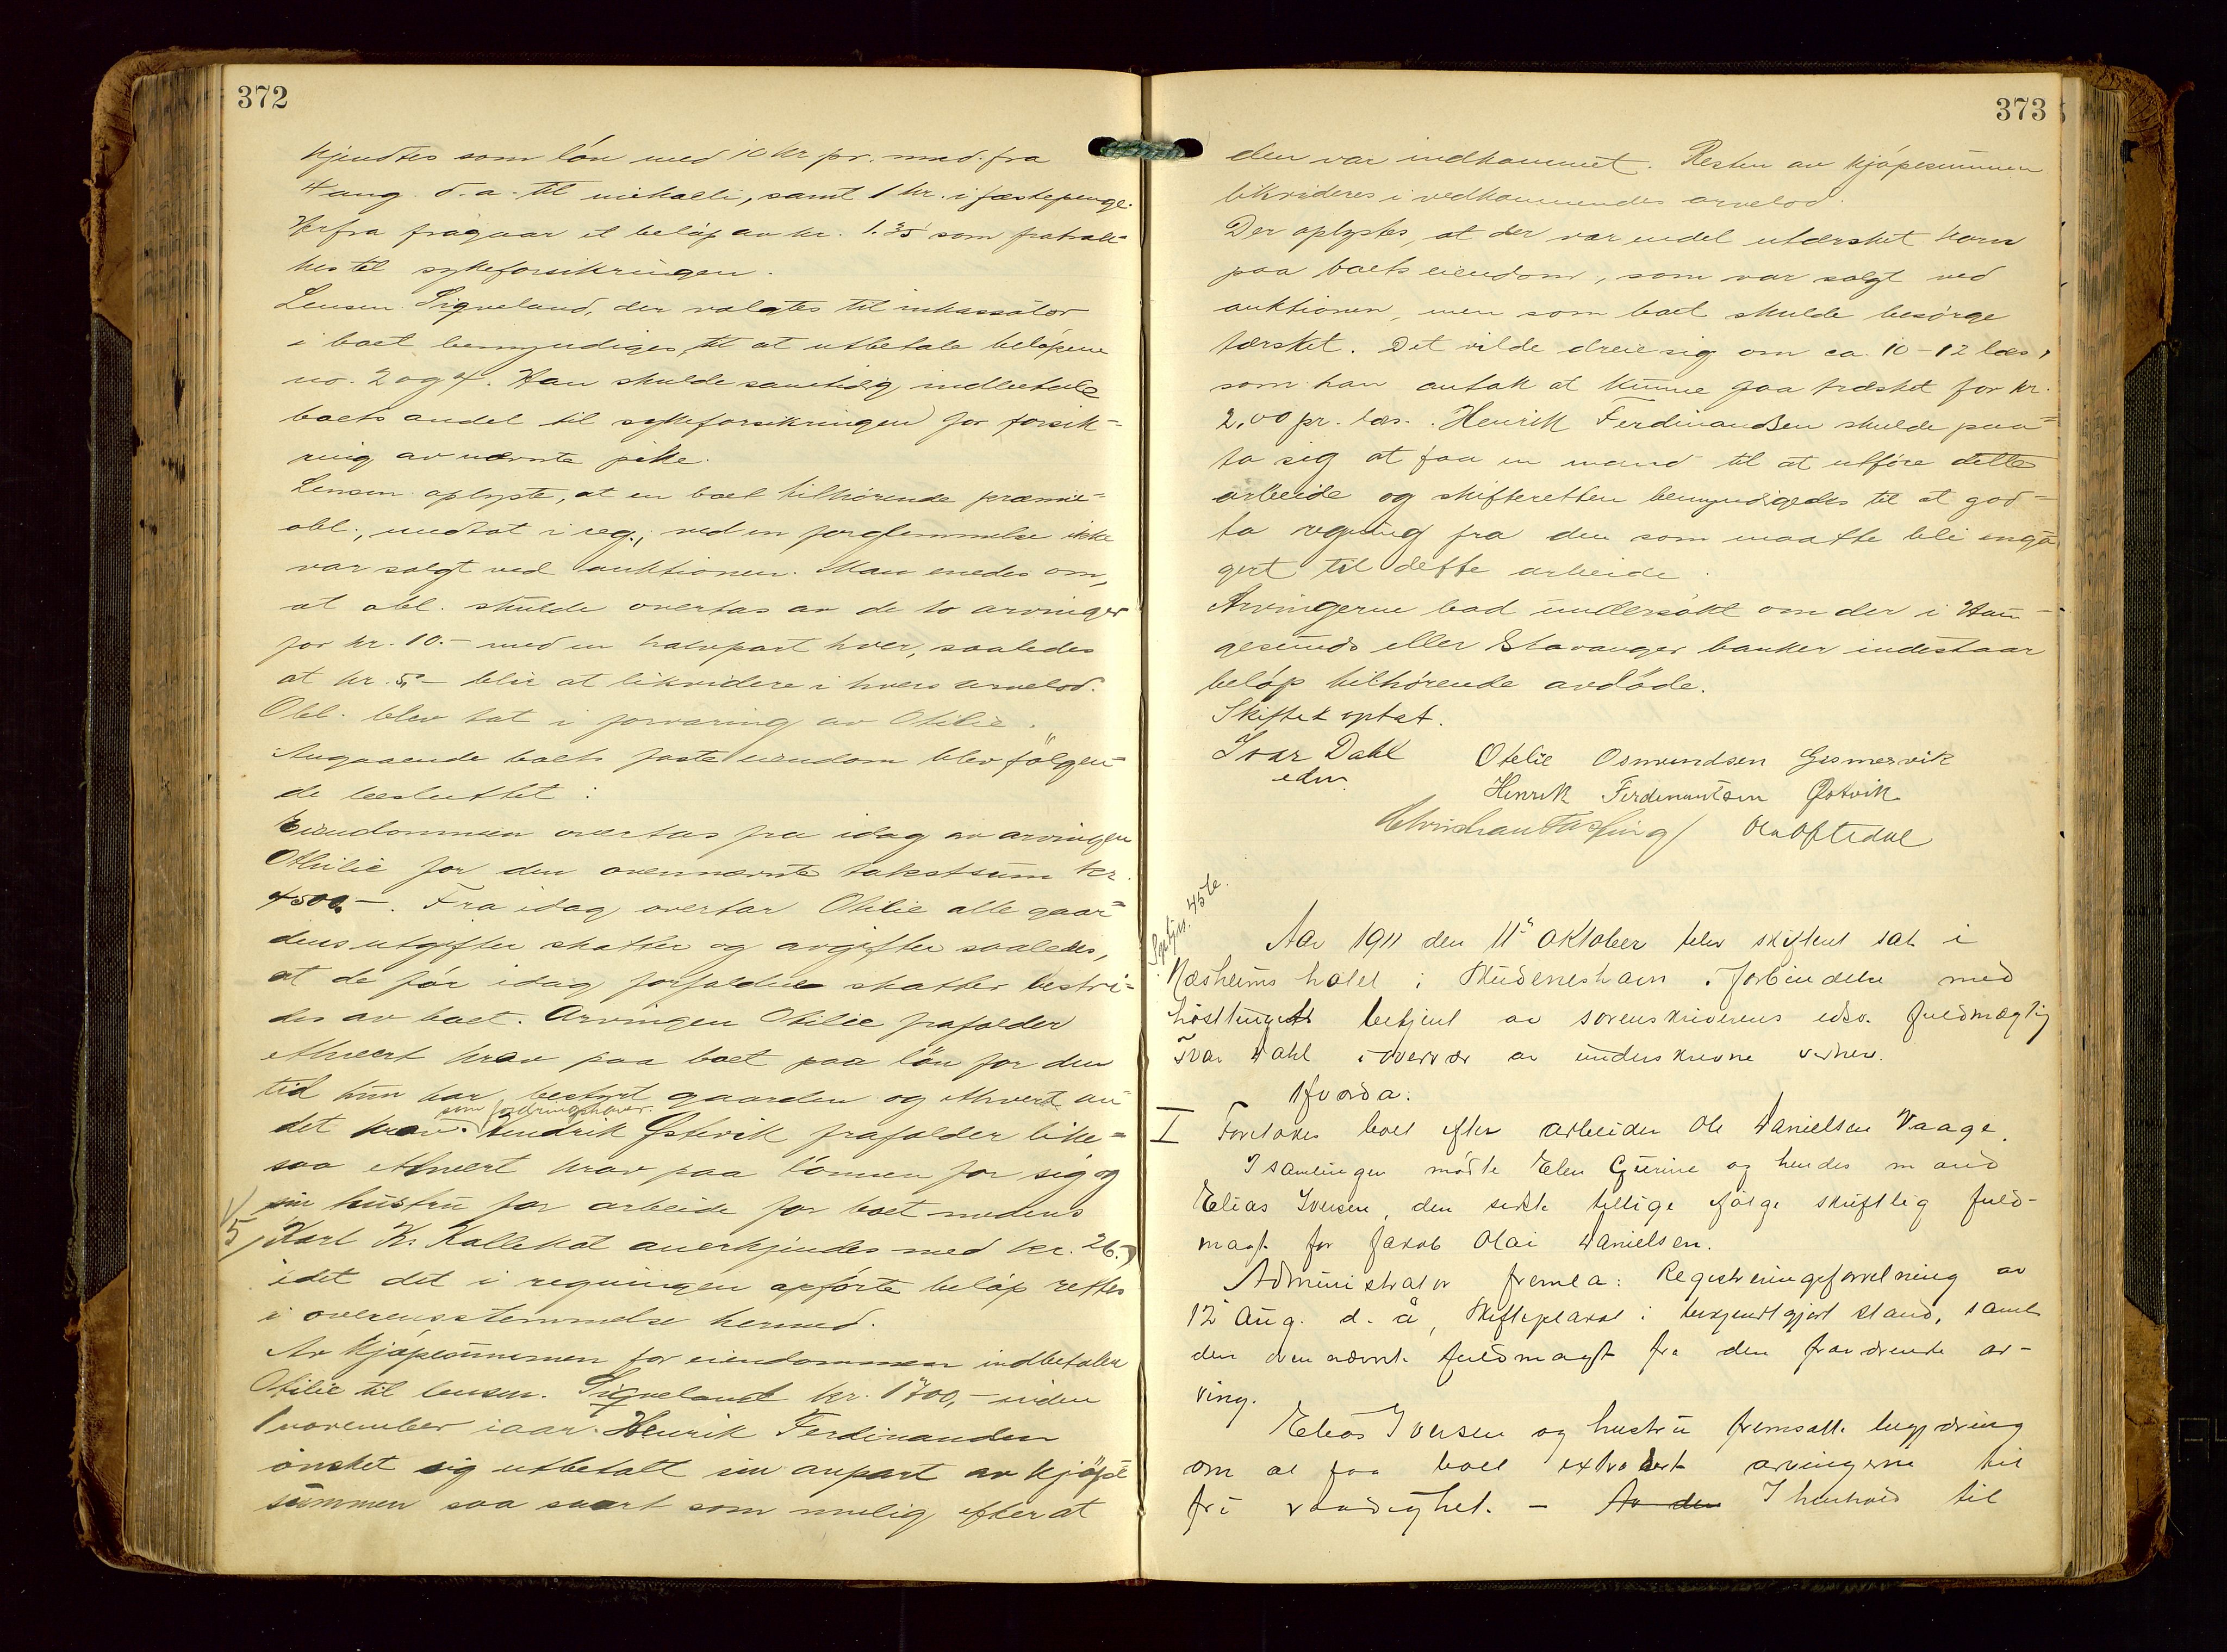 372
kjendtes som løn med 10 kr pr. mnd. fra
4 aug. d.a. til mikaeli, samt 1 kr. i fæstepenge.
Herfra fragaar et beløp av kr. 1.35 som fratræk-
kes til sykeforsikringen.
Lensm. Sigveland, der valgtes til inkassator
i boet bemyndiges til at utbetale beløpene
no. 2 og 4. Han skulde samtidig indbetale
boets andel til sykeforsikringen for forsik-
ring av nævnte pike.
Lensm. oplyste, at en boet tilhørende præmie-
obl., undtat i reg., ved en forglemmelse ikke
var solgt ved auktionen. Man enedes om,
at obl. skulde overtas av de to arvinger
for kr. 10.- med en halvpart hver, saaledes
at kr. 5,- blir at likvidere i hvers arvelod.
Obl. blev tat i forvaring av Otilie.
Angaaende boets faste eiendom blev følgen-
de besluttet:
Eiendommen overtas fra idag av arvingen
Othilie for den ovennævnte takstsum kr.
4500.-. Fra idag overtar Otilie alle gaar-
dens utgifter skatter og avgifter saaledes,
at de før idag forfaldne skatter bestri-
des av boet. Arvingen Otilie frafalder
ethvert krav paa boet paa løn for den
tid hun har bestyrt gaarden og ethvert an-
som fordringshaver.
det krav. Hendrik Østevik frafalder like-
saa ethvert krav paa lønnen for sig og
sin hustru for arbeide for boet medens
5/ Karl K. Kallekot anerkjendes med kr. 26.-,
idet det i regningen opførte beløp rettes
i overensstemmelse hermed.
Av kjøpesummen for eiendommen indbetaler
Otilie til lensm. Sigveland kr. 1700,- inden
1 november iaar. Henrik Ferdinandsen
ønsket sig utbetalt sin anpart av kjøpe
summen saa snart som mulig efter at
373
den var indkommet. Resten av kjøpesummen
likvideres i vedkommendes arvelod.
Der oplystes, at der var endel utærsket korn
paa boets eiendom, som var solgt ved
auktionen, men som boet skulde besørge
tærsket. Det vilde dreie sig om ca. 10-12 læs,
som han antok at kunne faa træsket for kr.
2,00 pr. læs. Henrik Ferdinandsen skulde paa-
ta sig at faa en mand til at utføre dette
arbeide og skifteretten bemyndigedes til at god-
ta regning fra den som maatte bli enga
gert til dette arbeide.
Arvingerne bad undersøkt om der i Hau-
gesunds eller Stavanger banker indestaar
beløp tilhørende avdøde.
Skiftet optat.
Ivar Dahl Otelie Osmundsen Gismervik
edsv. Henrik Ferdinantsen Østvik
Ola Oftedal
45 te.
Aar 1911 den 11te oktober blev skifteret sat i
Næsheims hotel i Skudeneshavn i forbindelse med
høsttinget betjent av sorenskriverens edsv. fuldmægtig
Ivar Dahl i overvær av underskrevne vidner.
Hvorda:
I Foretokes boet efter arbeider Ole Danielsen Vaage.
I samlingen møtte Elen Gurine og hendes mand
Elias Iversen, den sidste tillige ifølge skriftlig fuld-
magt for Jakob Olai Danielsen.
Administrator fremla: Registreringsforretning av
12 Aug. d. å, skifteplakat i bekjendtgjort stand, samt
den ovennævnte fuldmagt fra den fraværende ar-
ving.
Elias Iversen og hustru fremsatte begjæring
om at faa boet extradert arvingerne til
fri raadighet. - Av den I henhold til